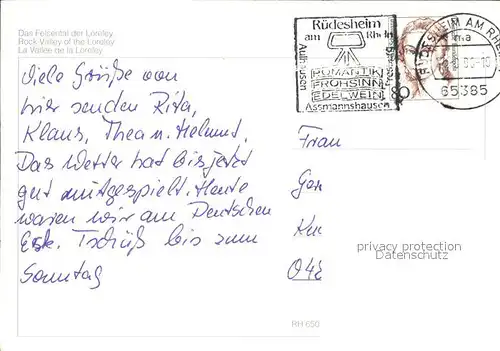 Das Felsental der Loreley
Rock Valley of the Loreley
La Vallée de la Loreley
Rüdesheim
am Rhein
Aulhausen
ROMANTIK
FROHSINN
EDELWEIN
Assmannshausen
80
RÜDESHEIM AM RHEIN
ma
65385
Viele Grüße von
hier senden Rita,
Klaus, Thea u. Helmut.
Das Wetter hat bis jetzt
gut mitgespielt. Heute
waren wir am Deutschen
Eck. Tschüß bis zum
Sonntag
Frau
privacy protection
Datenschutz
RH 650